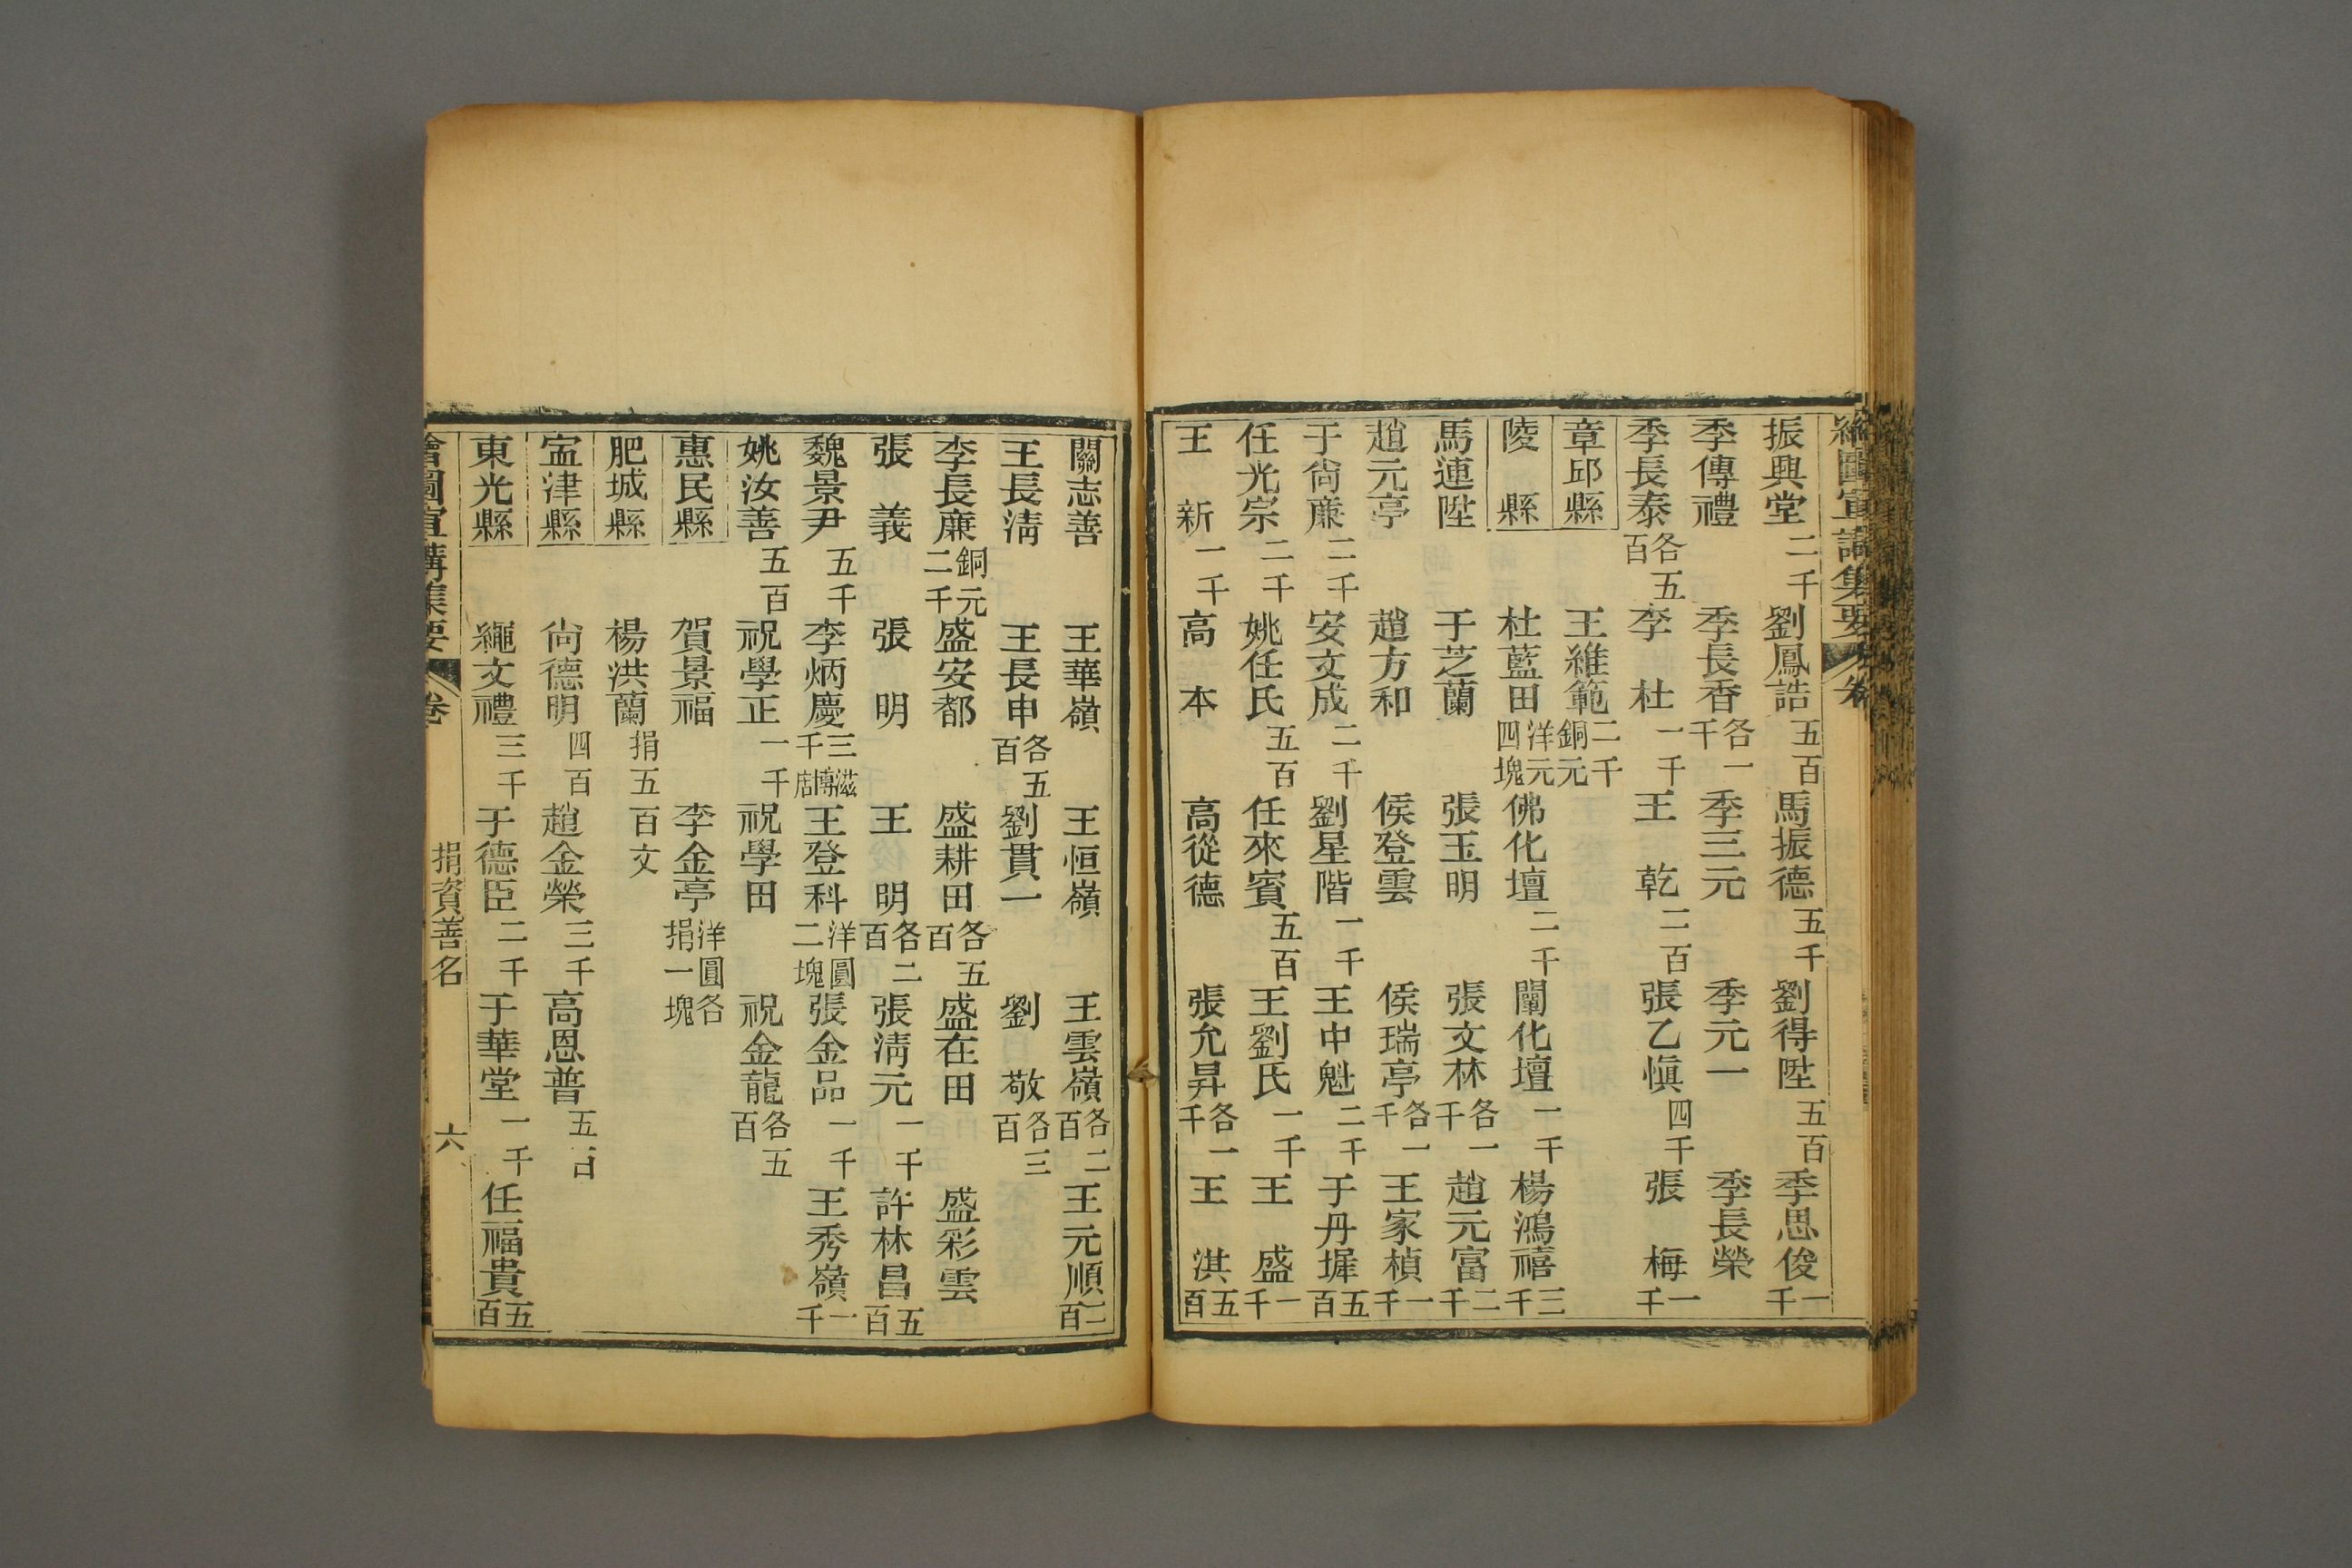 振興堂二千 劉鳳誥五百 馬振德五千 劉得陞五百 季思俊一千
季傳禮 季長香各一千 季三元 季元一 季長榮
季長泰各五百 李杜一千 王乾二百 張乙愼四千 張梅一千
章邱縣 王維範二千銅元
陵縣 杜藍田洋元四塊 佛化壇二千 闡化壇一千 楊鴻禧三千
馬連陞 于芝蘭 張玉明 張文林各一千 趙元富二千
趙元亭 趙方和 侯登雲 侯瑞亭各一千 王家楨一千
于尙廉二千 安文成二千 劉星階一千 王中魁二千 于丹墀五百
任光宗二千 姚任氏五百 任來賓五百 王劉氏一千 王盛一千
王新一千 高本 高從德 張允昇各一千 王淇五百
關志善 王華嶺 王恒嶺 王雲嶺各二百 王元順二百
王長淸 王長申各五百 劉貫一 劉敬各三百
李長廉銅元二千 盛安都 盛耕田各五百 盛在田 盛彩雲
張義 張明 王明各二百 張淸元一千 許林昌五百
魏景尹五千 李炳慶三千滋博店 王登科洋圓二塊 張金品一千 王秀嶺一千
姚汝善五百 祝學正一千 祝學田 祝金龍各五百
惠民縣 賀景福 李金亭洋圓各捐一塊
肥城縣 楊洪蘭捐五百文
寍津縣 尙德明四百 趙金榮三千 高恩普五百
東光縣 繩文禮三千 于德臣二千 于華堂一千 任福貴五百
繪圖宣講集要 卷 捐資善名 六